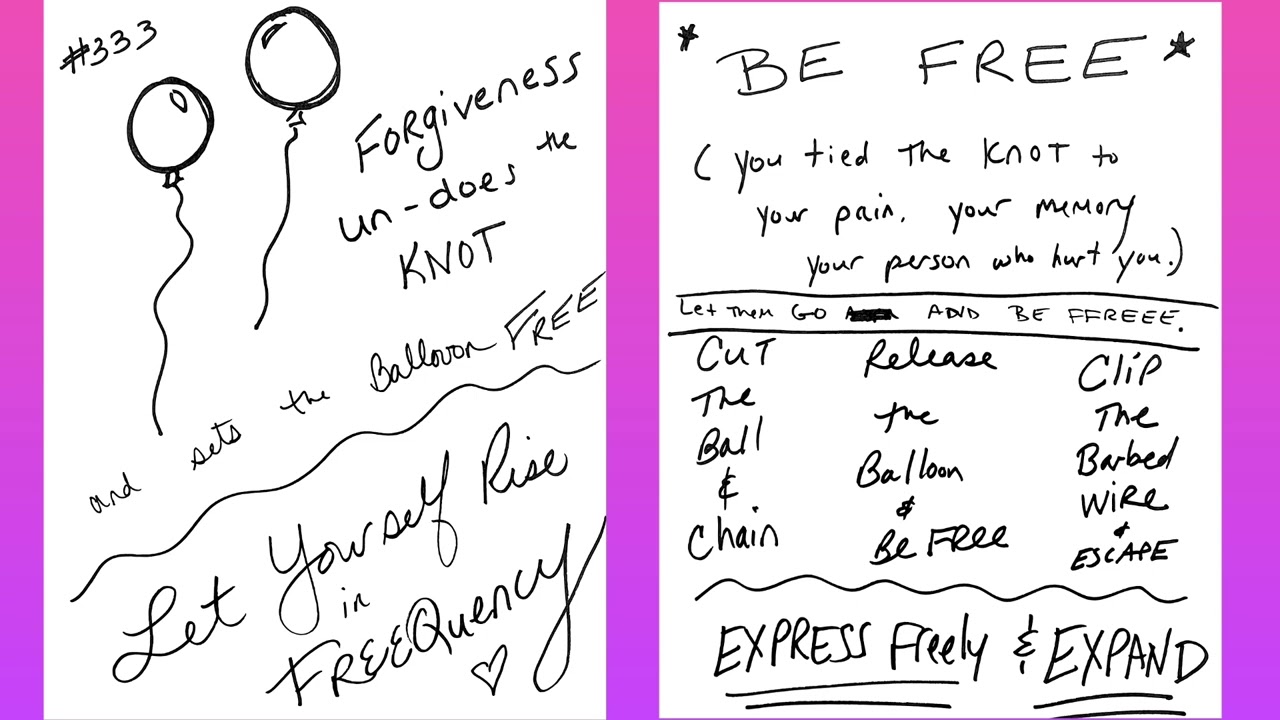 #333
Forgiveness
un-does the
KNOT
and sets the Ballooon FREE
Let Yourself Rise
in
FREEQuency
* BE FREE *
(you tied the KNOT to
your pain, your memory
your person who hurt you.)
Let them GO AND BE FFREEE.
CUT
The
Ball
&
Chain
Release
the
Balloon
&
Be FREE
Clip
The
Barbed
WIRE
&
ESCAPE
EXPRESS Freely & EXPAND